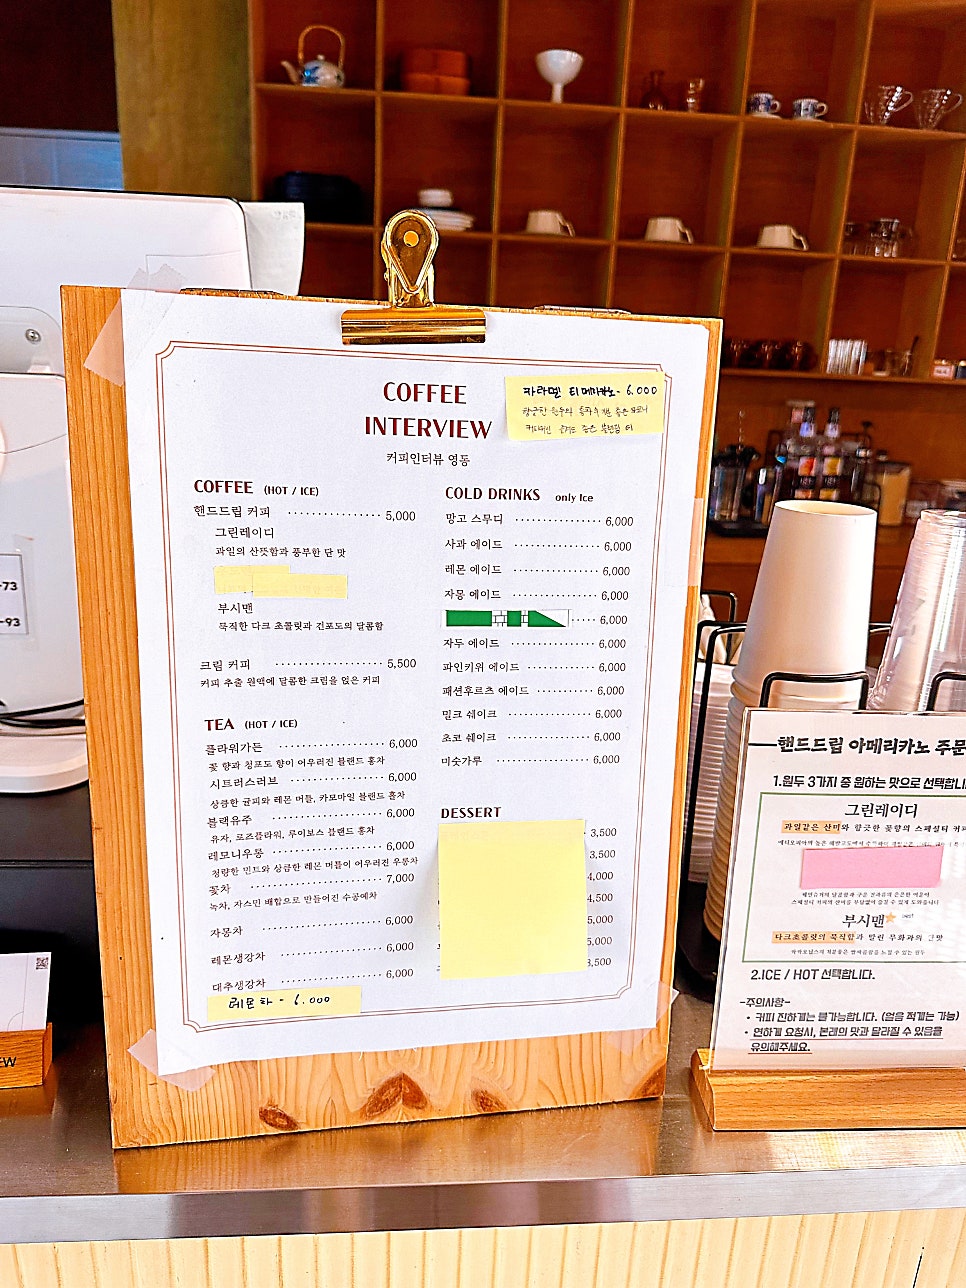 COFFEE
INTERVIEW
커피인터뷰 영동
카라멜 티메리카노 - 6.000
COFFEE (HOT / ICE)
핸드드립 커피 5,000
그린레이디
과일의 산뜻함과 풍부한 단 맛
부시맨
묵직한 다크 초콜릿과 건포도의 달콤함
크림 커피 5,500
커피 추출 원액에 달콤한 크림을 얹은 커피
TEA (HOT / ICE)
플라워가든 6,000
꽃 향과 청포도 향이 어우러진 블랜드 홍차
시트러스러브 6,000
상큼한 귤피와 레몬 머틀, 카모마일 블랜드 홍차
블랙유주 6,000
유자, 로즈플라워, 루이보스 블랜드 홍차
레모니우롱 6,000
청량한 민트와 상큼한 레몬 머틀이 어우러진 우롱차
꽃차 7,000
녹차, 자스민 배합으로 만들어진 수공예차
자몽차 6,000
레몬생강차 6,000
대추생강차 6,000
레몬차 - 6.000
COLD DRINKS only Ice
망고 스무디 6,000
사과 에이드 6,000
레몬 에이드 6,000
자몽 에이드 6,000
6,000
자두 에이드 6,000
파인키위 에이드 6,000
패션후르츠 에이드 6,000
밀크 쉐이크 6,000
초코 쉐이크 6,000
미숫가루 6,000
DESSERT
3,500
3,500
4,000
4,500
5,000
5,000
3,500
-73
-93
EW
핸드드립 아메리카노 주문
1.원두 3가지 중 원하는 맛으로 선택합니
그린레이디
과일같은 산미와 향긋한 꽃향의 스페셜티 커피
부시맨
다크초콜릿의 묵직함과 말린 무화과의 단맛
2.ICE / HOT 선택합니다.
-주의사항-
• 커피 진하게는 불가능합니다. (얼음 적게는 가능)
• 연하게 요청시, 본래의 맛과 달라질 수 있음을
유의해주세요.